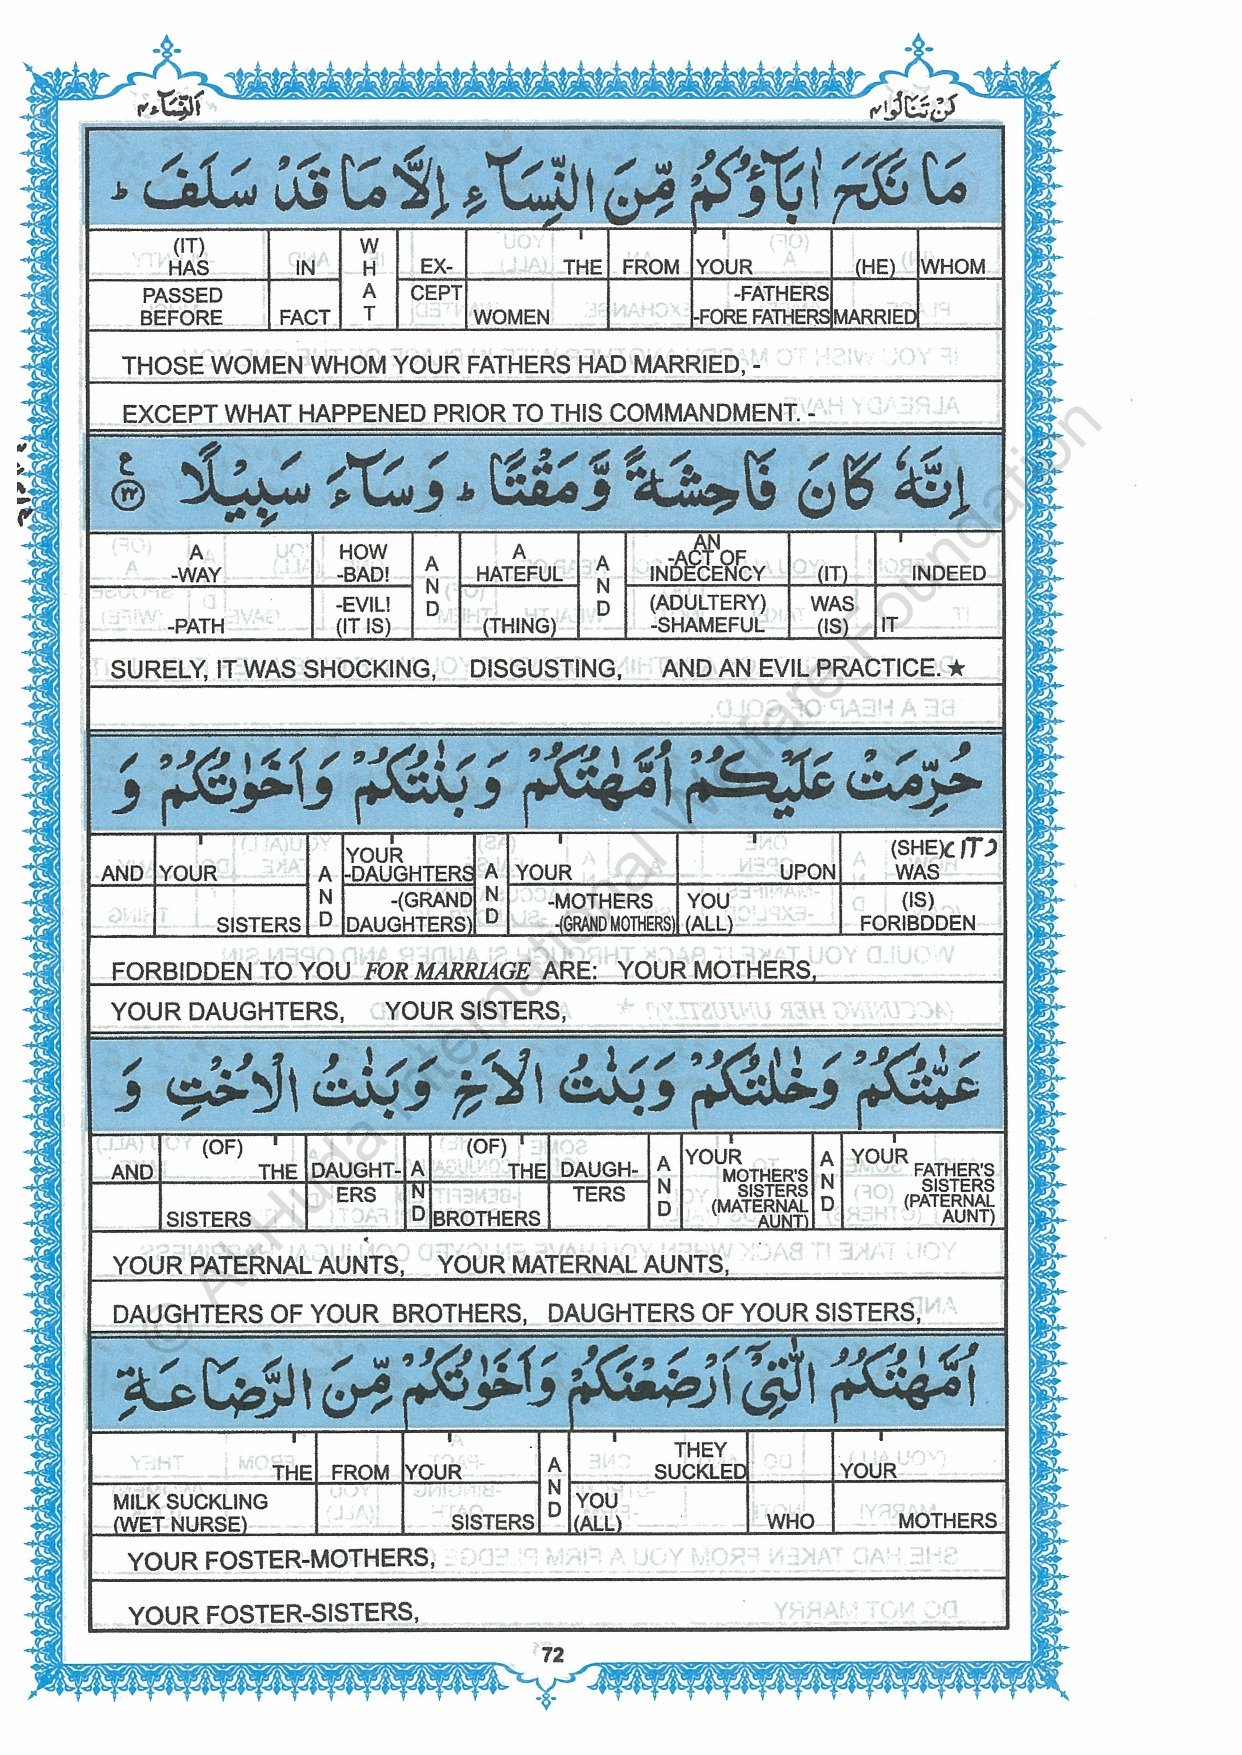 لَنْ تَنَالُوا ٤ النِّسَآء ٤
مَا نَكَحَ اٰبَآؤُكُمْ مِّنَ النِّسَآءِ اِلَّا مَا قَدْ سَلَفَ ؕ
(IT) HAS PASSED BEFORE | IN FACT | WHAT | EX-CEPT | THE WOMEN | FROM | YOUR -FATHERS -FORE FATHERS | (HE) MARRIED | WHOM
THOSE WOMEN WHOM YOUR FATHERS HAD MARRIED, -
EXCEPT WHAT HAPPENED PRIOR TO THIS COMMANDMENT. -
اِنَّهٗ كَانَ فَاحِشَةً وَّمَقْتًا ؕ وَسَآءَ سَبِيْلًا ع ٢٢
A -WAY -PATH | HOW -BAD! -EVIL! (IT IS) | AND | A HATEFUL (THING) | AND | AN -ACT OF INDECENCY (ADULTERY) -SHAMEFUL | (IT) WAS (IS) | INDEED IT
SURELY, IT WAS SHOCKING, DISGUSTING, AND AN EVIL PRACTICE. ★
حُرِّمَتْ عَلَيْكُمْ اُمَّهٰتُكُمْ وَبَنٰتُكُمْ وَاَخَوٰتُكُمْ وَ
AND | YOUR SISTERS | AND | YOUR -DAUGHTERS -(GRAND DAUGHTERS) | AND | YOUR -MOTHERS -(GRAND MOTHERS) | UPON YOU (ALL) | (SHE) (IT) WAS (IS) FORIBDDEN
FORBIDDEN TO YOU FOR MARRIAGE ARE: YOUR MOTHERS,
YOUR DAUGHTERS, YOUR SISTERS,
عَمّٰتُكُمْ وَخٰلٰتُكُمْ وَبَنٰتُ الْاَخِ وَبَنٰتُ الْاُخْتِ وَ
AND | (OF) THE SISTERS | DAUGHT-ERS | AND | (OF) THE BROTHERS | DAUGH-TERS | AND | YOUR MOTHER'S SISTERS (MATERNAL AUNT) | AND | YOUR FATHER'S SISTERS (PATERNAL AUNT)
YOUR PATERNAL AUNTS, YOUR MATERNAL AUNTS,
DAUGHTERS OF YOUR BROTHERS, DAUGHTERS OF YOUR SISTERS,
اُمَّهٰتُكُمُ الّٰتِيْٓ اَرْضَعْنَكُمْ وَاَخَوٰتُكُمْ مِّنَ الرَّضَاعَةِ
THE MILK SUCKLING (WET NURSE) | FROM | YOUR SISTERS | AND | THEY SUCKLED YOU (ALL) | WHO | YOUR MOTHERS
YOUR FOSTER-MOTHERS,
YOUR FOSTER-SISTERS,
72
© Al Huda International Welfare Foundation